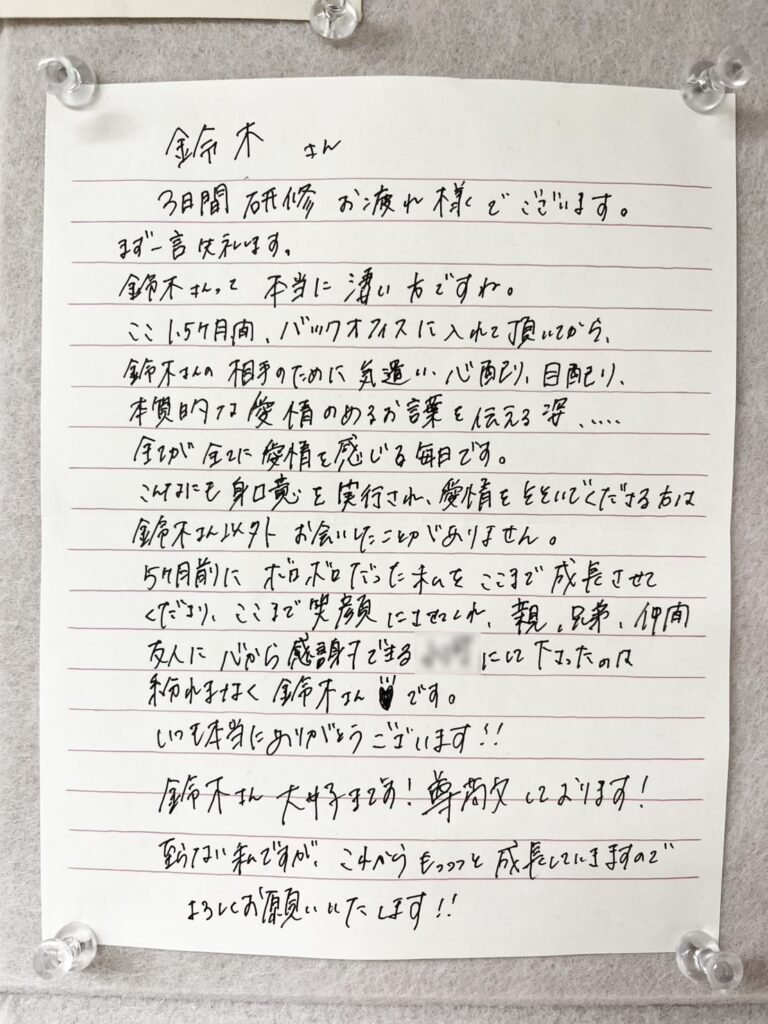 鈴木 さん
3日間 研修 お疲れ様でございます。
まず一言失礼します。
鈴木さんって 本当に 凄い 方ですね。
ここ 1.5ヶ月間、バックオフィスに 入れて 頂いてから、
鈴木さんの 相手のために 気遣い、心配り、目配り、
本質的な 愛情のあるお言葉を 伝える 姿、....
全てが 全てに 愛情を 感じる 毎日です。
こんなにも 身口意を 実行され、愛情を そそいでくださる 方は
鈴木さん以外 お会いしたことがありません。
5ヶ月前に ボロボロだった 私を ここまで 成長させて
くださり、ここまで 笑顔 にさせてくれ、親、兄弟、仲間
友人に 心から 感謝できる にして 下さったのは
紛れもなく 鈴木さん です。
いつも本当にありがとうございます!!
鈴木さん 大好きです! 尊敬しております!
至らない 私ですが、これからも もっっっと 成長していきますので
よろしくお願いいたします!!